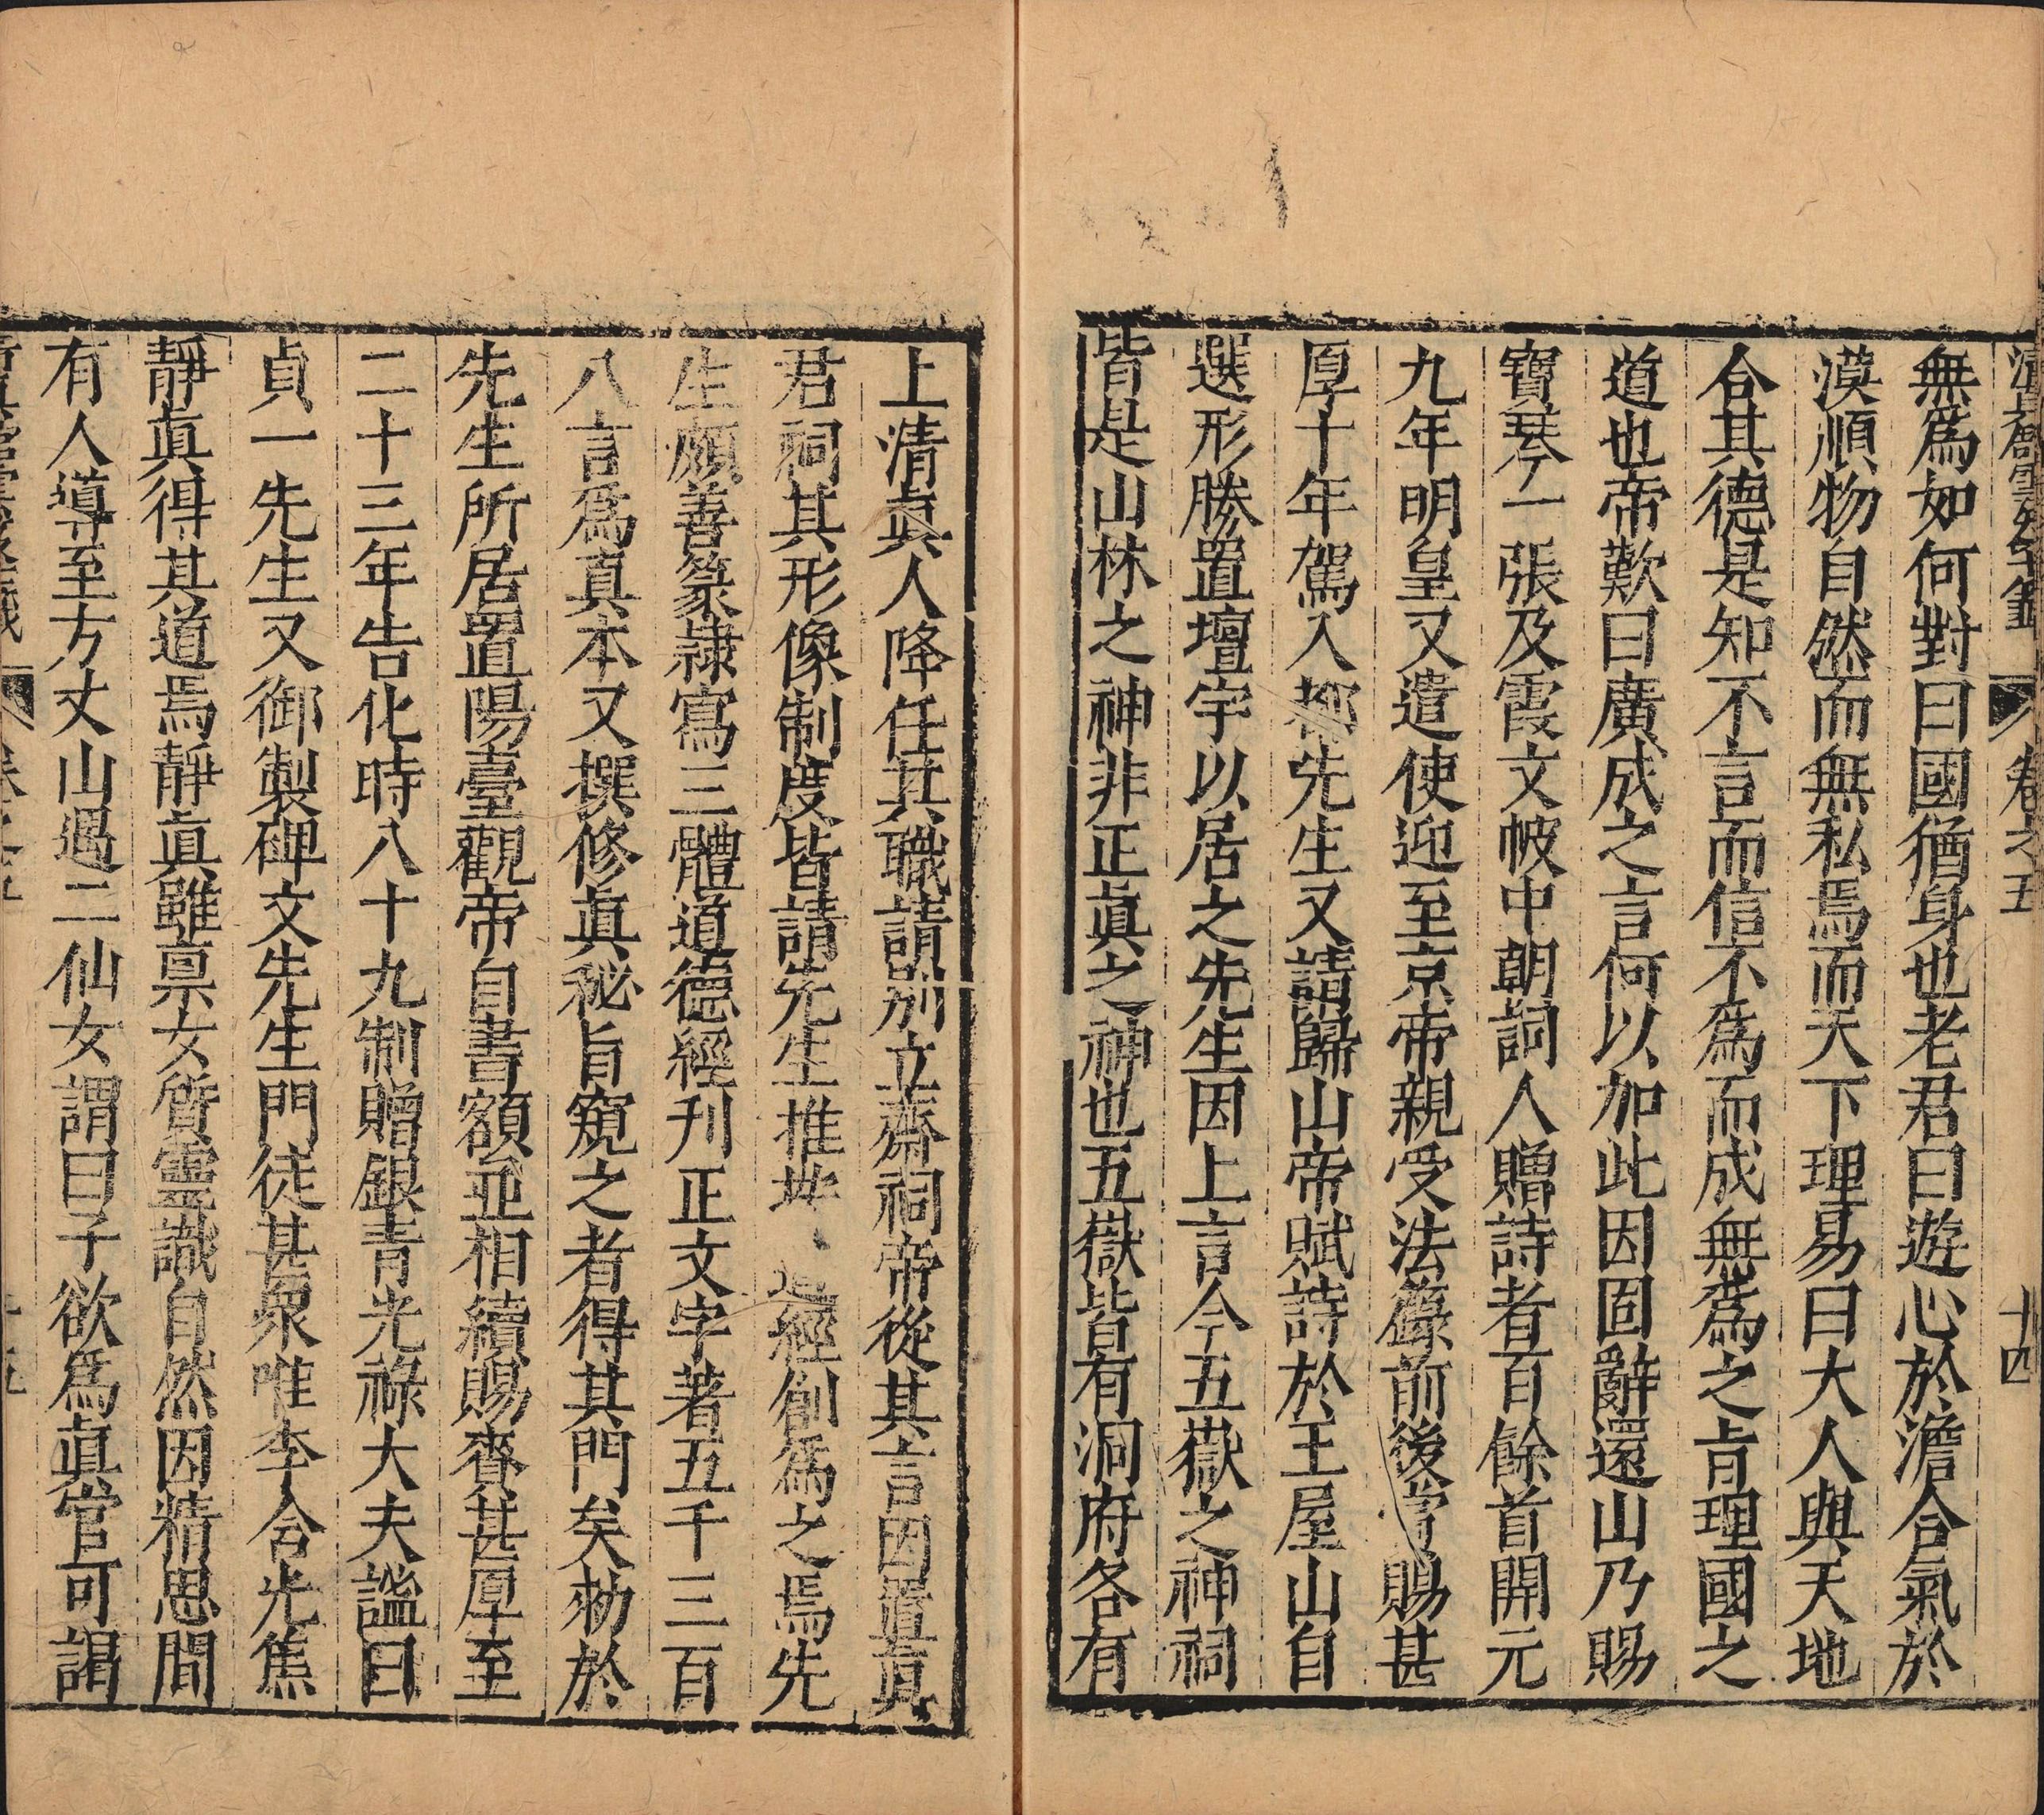 卷之五 十四
無爲如何對曰國猶身也老君曰遊心於澹合氣於
漠順物自然而無私焉而天下理易曰大人與天地
合其德是知不言而信不爲而成無爲之肯理國之
道也帝歎曰廣成之言何以加此因固辭還山乃賜
寶琴一張及霞文帔中朝詞人贈詩者百餘首開元
九年明皇又遣使迎至京帝親受法籙前後賞賜甚
厚十年駕入都先生又請歸山帝賦詩於王屋山自
選形勝置壇宇以居之先生因上言今五嶽之神祠
皆是山林之神非正眞之神也五嶽皆有洞府各有
上清眞人降任其職請別立齋祠帝從其言因置眞
君祠其形像制度皆請先生推 道經創爲之焉先
生頗善篆隷寫三體道德經刋正文字著五千三百
八言爲真本又撰修眞秘旨窺之者得其門矣勑於
先生所居置陽臺觀帝自書額並相續賜賚甚厚至
二十三年告化時八十九制贈銀青光祿大夫謚曰
貞一先生又御製碑文先生門徒甚衆唯李含光焦
靜眞得其道焉靜眞雖禀女質靈識自然因精思間
有人導至方丈山遇二仙女謂曰子欲爲眞官可謁